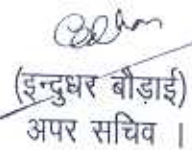 (इन्दुधर बौड़ाई)
अपर सचिव ।